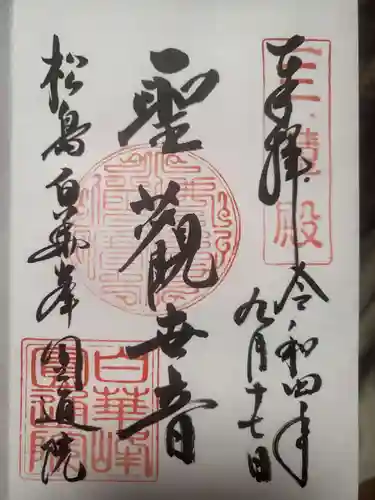 奉拝
令和四年
九月十七日
三慧殿
聖觀世音
松島 白華峰 圓通院
白華峰
圓通院